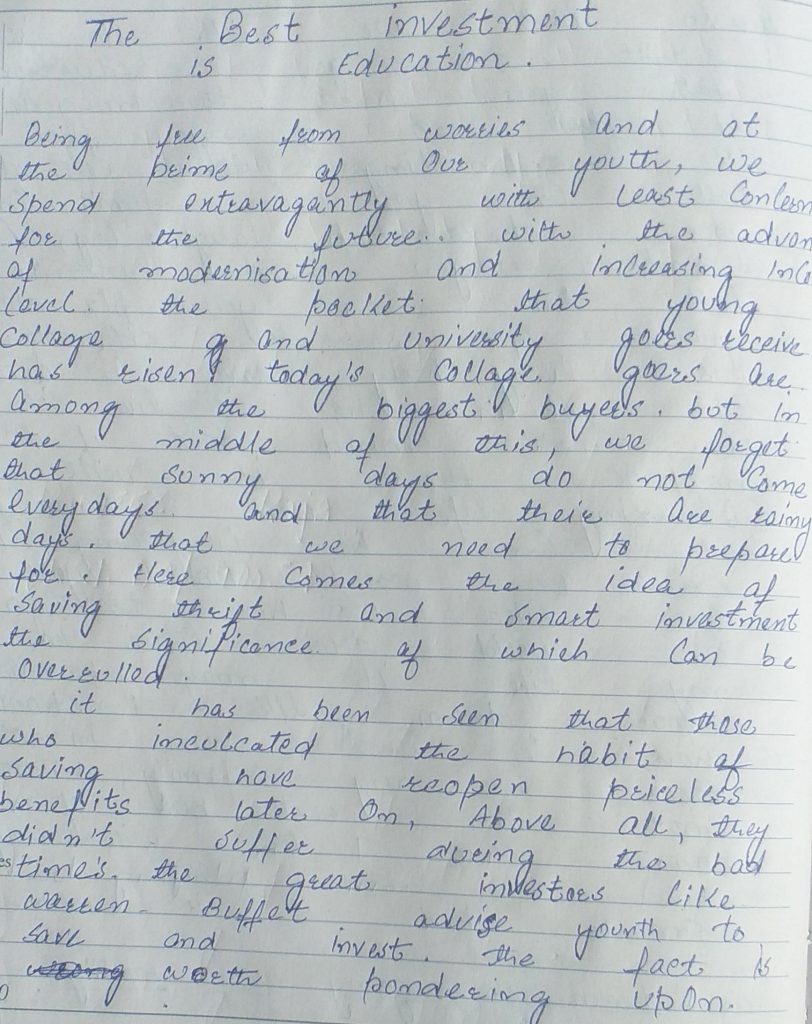 The Best investment
is Education.
Being free from worries and at
the prime of our youth, we
spend extravagantly with least Concern
for the future.. with the advon
of modernisation and increasing Inc
level. the pocket that young
Collage and university goers receive
has risen today's Collage goers are
among the biggest buyers. but in
the middle of this, we forget
that sunny days do not Come
every days. and that their are rainy
days. that we need to prepared
for. Here Comes the idea of
Saving thrift and smart investment
the significance of which Can be
Overrulled.
it has been seen that those
who inculcated the habit of
saving have reopen priceless
benefits later On, Above all, they
didn't suffer during the bad
times. the great investors like
warren Buffet advise yourth to
save and invest. the fact is
worth pondering upon.